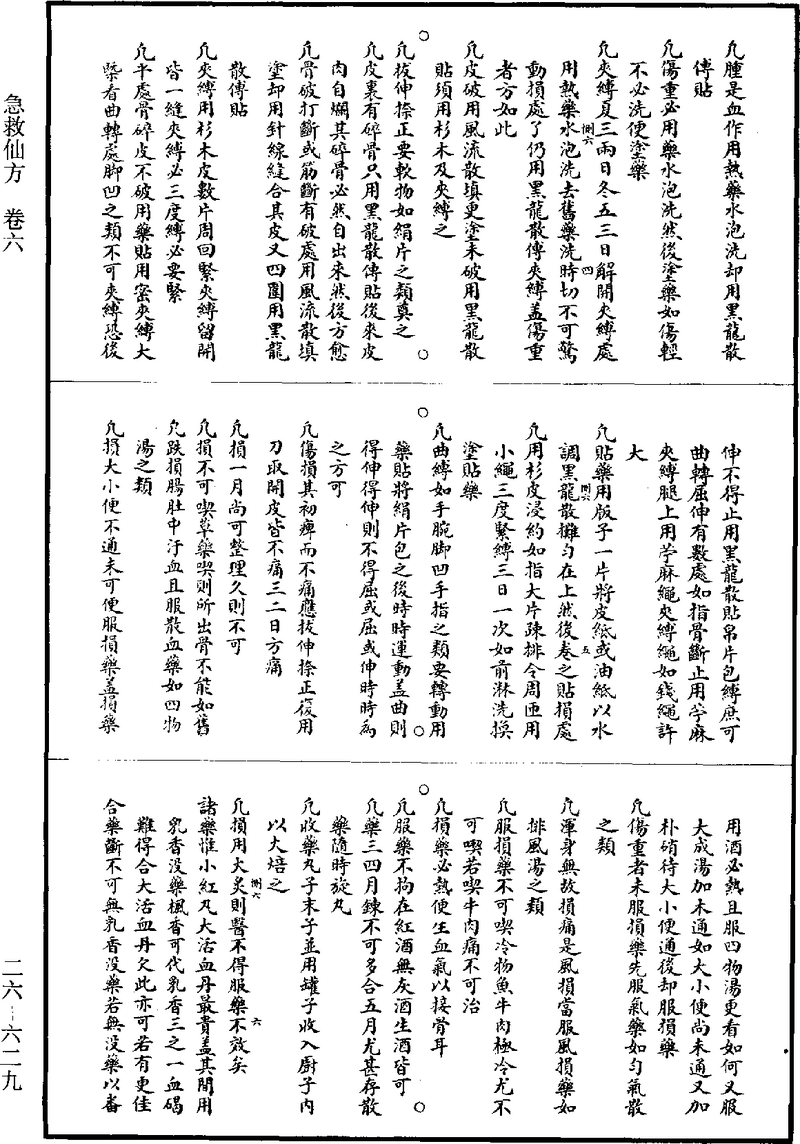 急救仙方　卷六
凡腫是血作用熱藥水泡洗却用黑龍散
傅貼
凡傷重必用藥水泡洗然後塗藥如傷輕
不必洗便塗藥
凡夾縛夏三兩日冬五三日解開夾縛處
用熱藥水泡洗去舊藥洗時切不可驚
動損處了仍用黑龍散傅夾縛盖傷重
者方如此
凡皮破用風流散填更塗未破用黑龍散
貼須用杉木及夾縛之
凡拔伸捺正要軟物如絹片之類奠之
凡皮裏有碎骨只用黑龍散傅貼後來皮
肉自爛其碎骨必然自出來然後方愈
凡骨破打斷或筋斷有破處用風流散填
塗却用針線縫合其皮又四圍用黑龍
散傅貼
凡夾縛用杉木皮數片周回緊夾縛留開
皆一縫夾縛必三度縛必要緊
凡平處骨碎皮不破用藥貼用密夾縛大
槩看曲轉處脚凹之類不可夾縛恐後
伸不得止用黑龍散貼帛片包縛庶可
曲轉屈伸有數處如指骨斷止用苧麻
夾縛腿上用苧麻繩夾縛繩如錢繩許
大
凡貼藥用版子一片將皮紙或油紙以水
調黑龍散攤勻在上然後卷之貼損處
凡用杉皮浸約如指大片疎排令周匝用
小繩三度緊縛三日一次如前淋洗換
塗貼藥
凡曲縛如手腕脚凹手指之類要轉動用
藥貼將絹片包之後時時運動盖曲則
得伸得伸則不得屈或屈或伸時時為
之方可
凡傷損其初痺而不痛應拔伸捺正復用
刀取開皮皆不痛三二日方痛
凡損一月尚可整理久則不可
凡損不可喫草藥喫則所出骨不能如舊
凡跌損腸肚中汙血且服散血藥如四物
湯之類
凡損大小便不通未可便服損藥盖損藥
用酒必熱且服四物湯更看如何又服
大成湯加未通如大小便尚未通又加
朴硝待大小便通後却服損藥
凡傷重者未服損藥先服氣藥如勻氣散
之類
凡渾身無故損痛是風損當服風損藥如
排風湯之類
凡服損藥不可喫冷物魚牛肉極冷尤不
可喫若喫牛肉痛不可治
凡損藥必熱便生血氣以接骨耳
凡服藥不拘在紅酒無灰酒生酒皆可
凡藥三四月鍊不可多合五月尤甚存散
藥隨時旋丸
凡收藥丸子末子並用罐子收入厨子内
以火焙之
凡損用火炙則醫不得服藥不效矣
諸藥惟小紅丸大活血丹最貴盖其間用
乳香没藥楓香可代乳香三之一血碣
難得合大活血丹欠此亦可若有更佳
合藥斷不可無乳香没藥若無没藥以番
二六—六二九